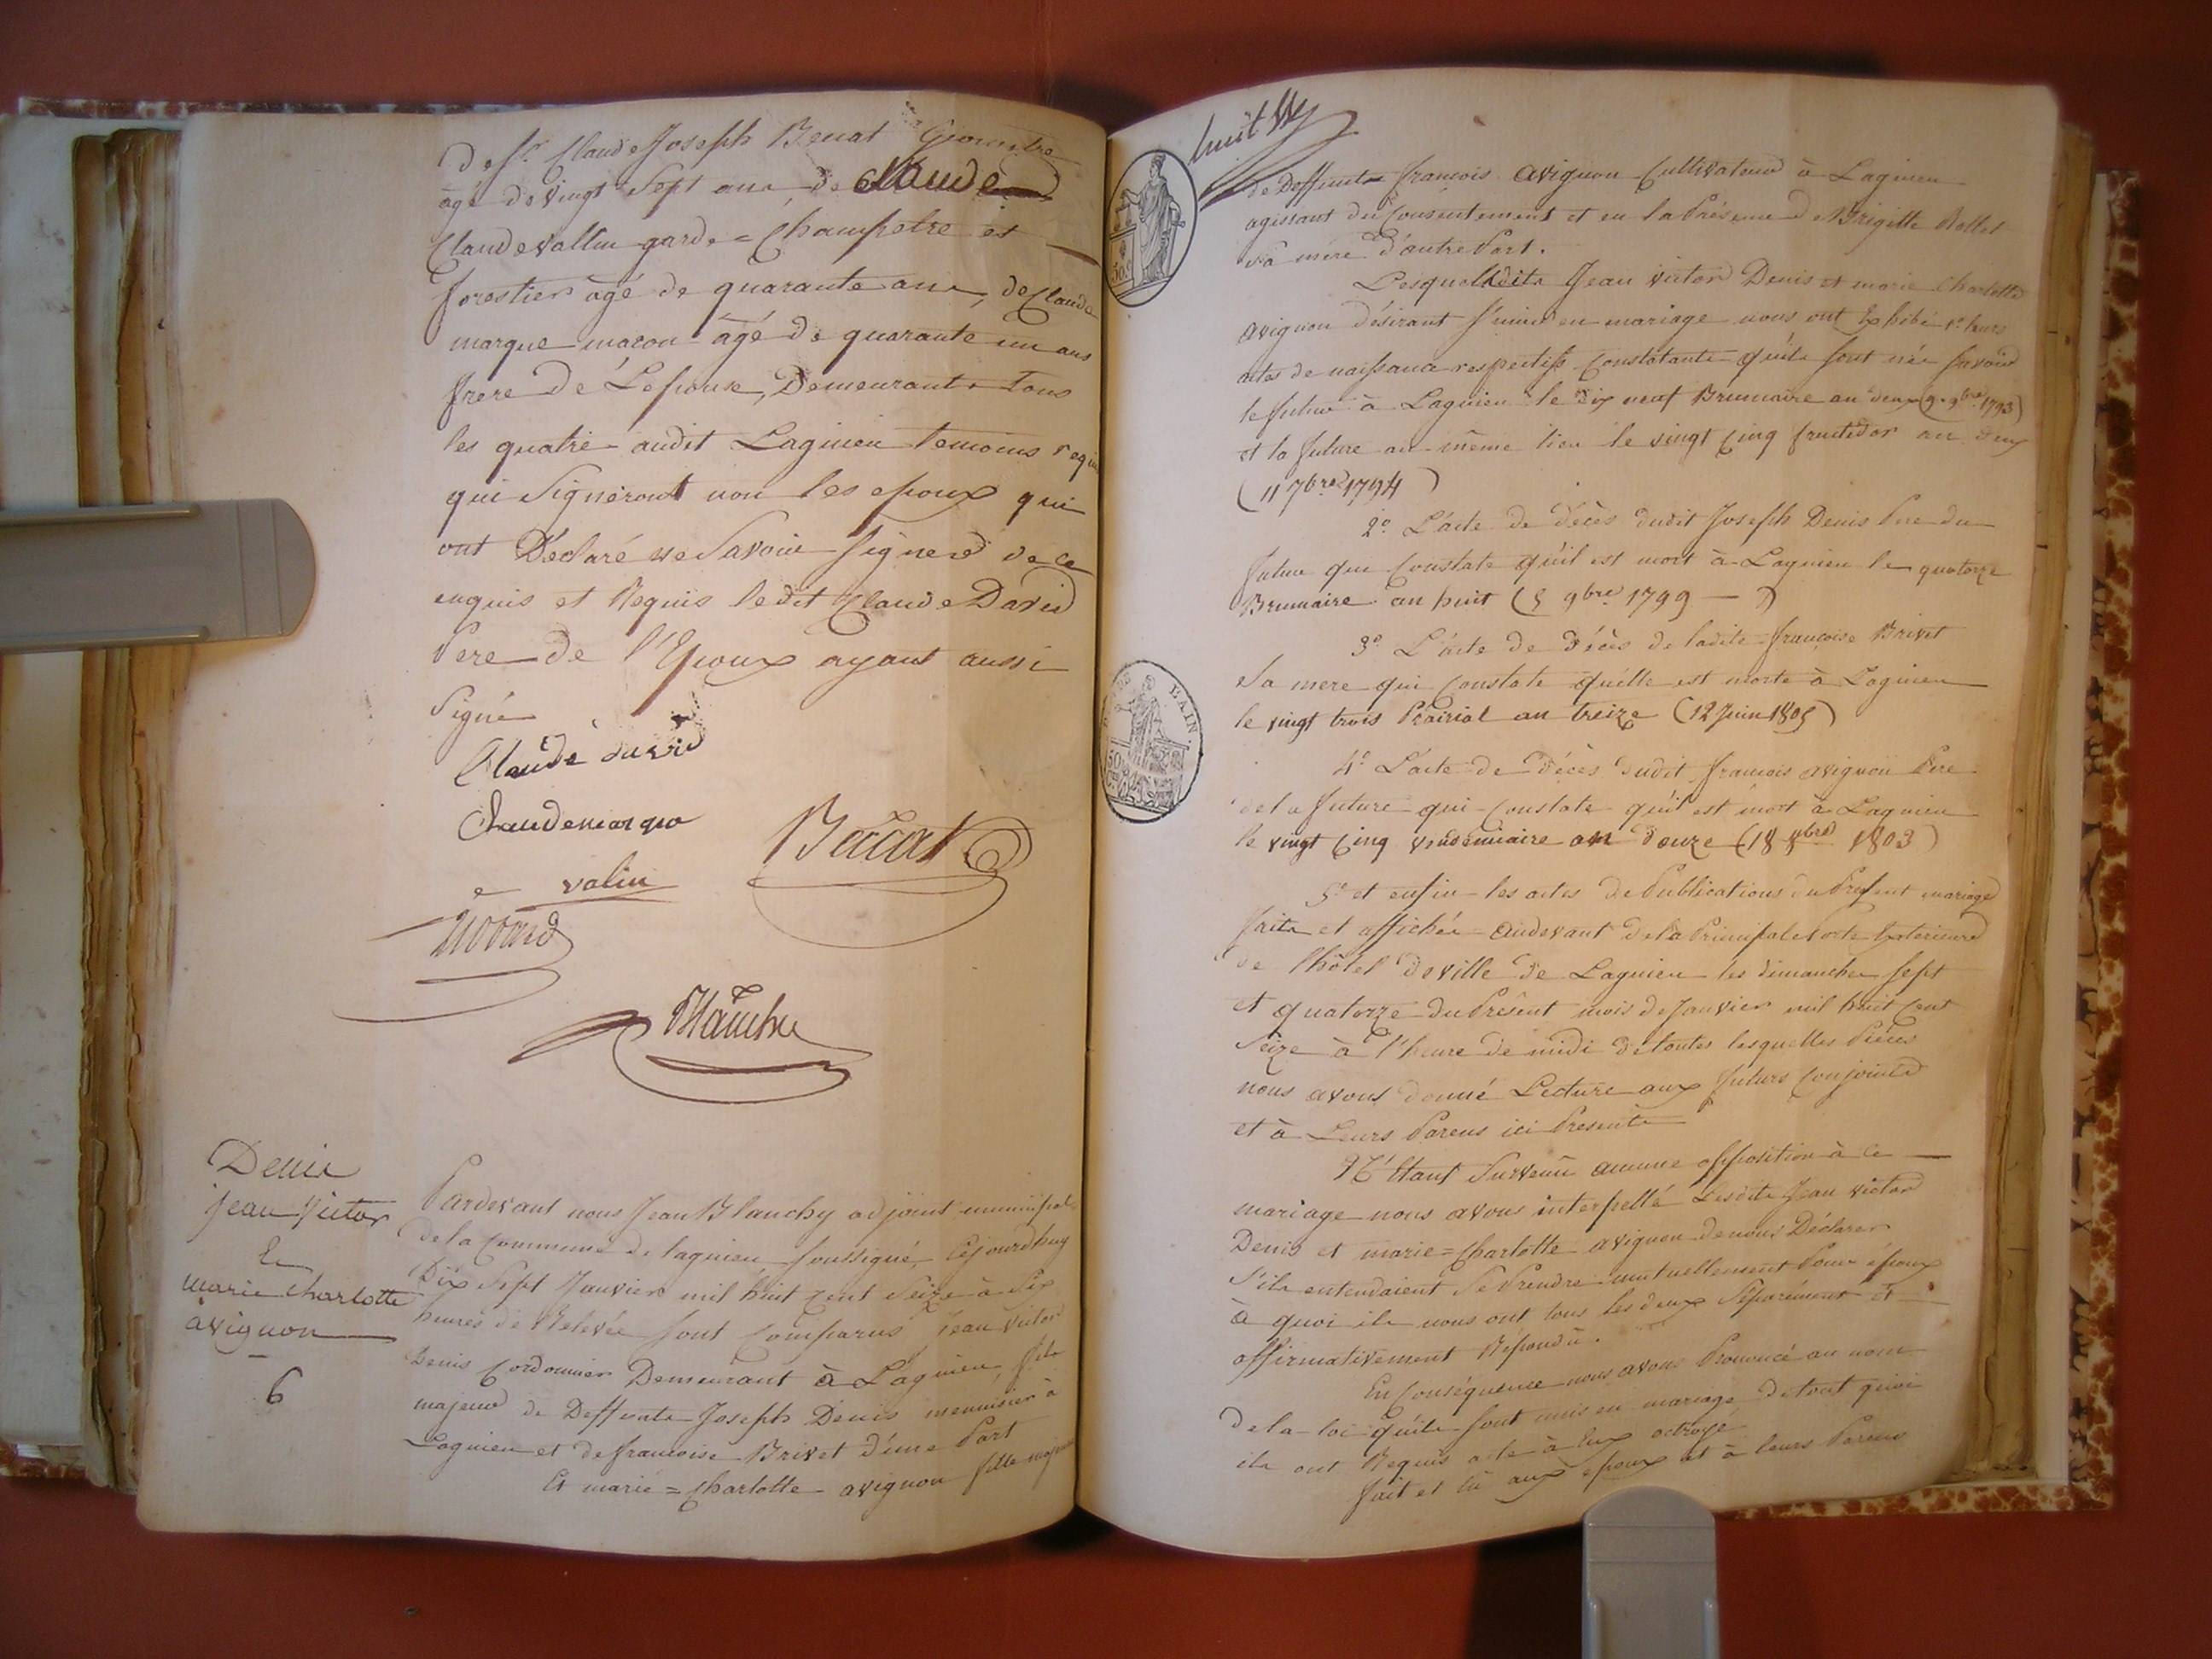 De Sr. Claude Joseph Benat Géomètre
agé de vingt Sept ans de Claude
Claude vallin garde = Champetre et
forestier âgé de quarante ans, de Claude
marque maçon âgé de quarante un ans
frere de L'epouse, Demeurants Tous
les quatre audit Lagnieu temoins requis
qui Signeront non les epoux qui
ont Déclaré ne Savoir Signer de ce
enquis et Requis ledit Claude David
Pere de l'Epoux ayant aussi
Signé
Claude david
Claudemarque
valin
Blanchy
Denis
jean victor
Et
marie Charlotte
avignon
6
Pardevant nous Jean Blanchy adjoint municipal
de la Commune de lagnieu soussigné, Cejourdhuy
Dix Sept Janvier mil huit cent Seize à Six
heures de Relevée sont Comparus Jean Victor
Denis Cordonnier Demeurant à Lagnieu, fils
majeur de Deffunts Joseph Denis menuisier à
Lagnieu et de françoise Brivet d'une Part
Et marie = Charlotte avignon fille majeure
huit
de Deffunt françois avignon Cultivateur à Lagnieu
agissant du Consentement et en la Présence de Brigitte Rollet
sa mère d'autre Part.
Lesquels dits Jean victor Denis et marie Charlotte
avignon désirant s'unir en mariage nous ont Exhibé 1o. leurs
actes de naissance respectifs Constatants qu'ils sont nés Savoir
le futur à Lagnieu le dix neuf Brumaire an deux (9. 9bre 1793)
et la future au même lieu le vingt Cinq fructidor an deux
(11 7bre 1794)
2o. L'acte de décès dudit Joseph Denis Pere du
futur qui Constate qu'il est mort à Lagnieu le quatorze
Brumaire an huit (5 9bre 1799 —)
3o. L'acte de décès de ladite françoise Brivet
Sa mere qui Constate qu'elle est morte à Lagnieu
le vingt trois Prairial an treize (12 Juin 1805)
4o. L'acte de décès dudit françois avignon Pere
de la future qui Constate qu'il est mort à Lagnieu
le vingt Cinq vendémiaire an douze (18 8bre 1803)
5o. et enfin les actes de Publications du Present mariage
faits et affichés audevant de la Principale Porte Exterieure
de l'hôtel de ville de Lagnieu les dimanches sept
et quatorze du Présent mois de Janvier mil huit Cent
Seize à l'heure de midi de toutes lesquelles Pièces
nous avons donné Lecture aux futurs Conjoints
et à Leurs Parens ici Presents
N'étant Survenu aucune opposition à ce —
mariage nous avons interpellé Lesdits Jean victor
Denis et marie = Charlotte avignon de nous Déclarer
s'ils entendaient Se Prendre mutuellement Pour époux
à quoi ils nous ont tous les deux Séparément et
affirmativement Répondu.
En Conséquence nous avons Prononcé au nom
de la loi qu'ils sont unis en mariage, de tout quoi
ils ont Requis acte à Eux octroyé
fait et lu aux epoux et à leurs Parens